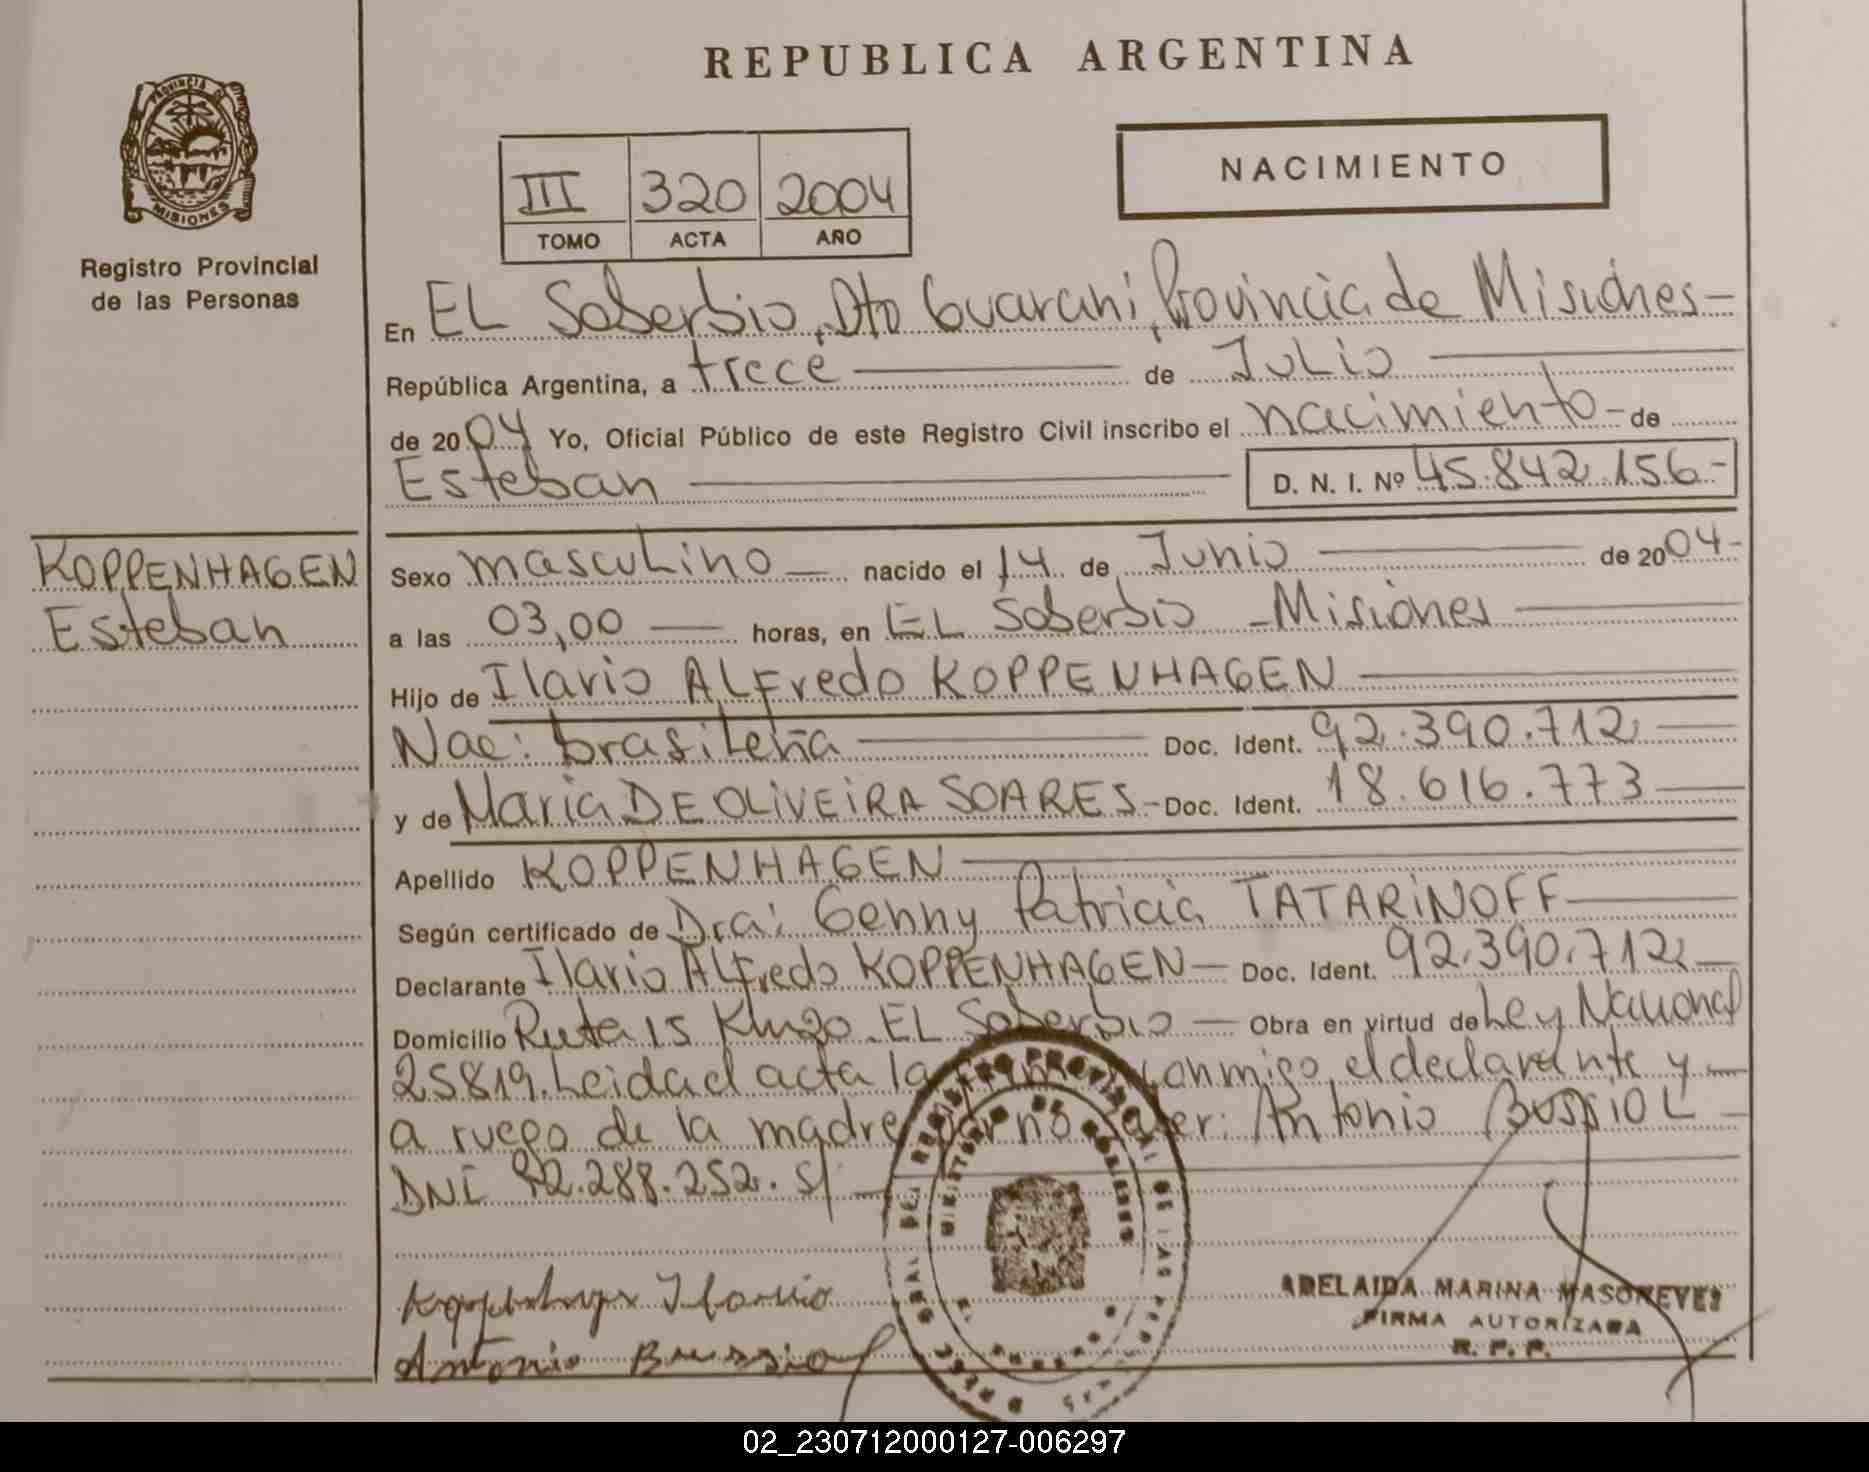 REPUBLICA ARGENTINA
PROVINCIA DE
MISIONES
Registro Provincial
de las Personas
III 320 2004
TOMO ACTA AÑO
NACIMIENTO
En EL Soberbio, Dto Guarani, Provincia de Misiones
República Argentina, a trece de Julio
de 2004 Yo, Oficial Público de este Registro Civil inscribo el nacimiento de
Esteban D. N. I. Nº 45.842.156
KOPPENHAGEN
Esteban
Sexo masculino nacido el 14 de Junio de 2004
a las 03,00 horas, en EL Soberbio - Misiones
Hijo de Ilario ALFredo KOPPENHAGEN
Nac: brasileña Doc. Ident. 92.390.712
y de Maria DE OLIVEIRA SOARES Doc. Ident. 18.616.773
Apellido KOPPENHAGEN
Según certificado de Dra: Genny Patricia TATARINOFF
Declarante Ilario ALFredo KOPPENHAGEN Doc. Ident. 92.390.712
Domicilio Ruta 15 Km20 EL Soberbio Obra en virtud de Ley Nacional
25819. Leida el acta la conmigo el declarante y
a ruego de la madre por no Antonio BUSSIOL
DNI 92.288.252. S/
Ilario
Antonio Bussiol
REGISTRO PROVINCIAL DE LAS
MINISTERIO DE GOBIERNO
ADELAIDA MARINA
FIRMA AUTORIZADA
R. P. P.
02_230712000127-006297